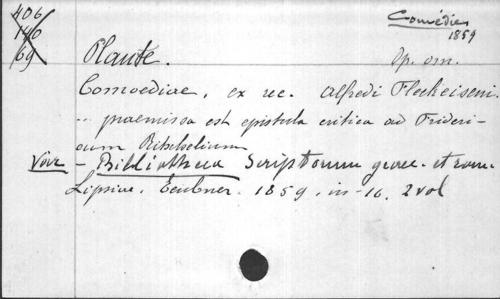 406
146
69
Comédies
1859
Plaute.
Op. om.
Comoediae, ex rec. Alfredi Fleckeiseni
.. praemissa est epistula critica ad Frideri-
cum Ritschelium
Voir – Bibliotheca Scriptorum graec. et rom.
Lipsiae. Teubner. 1859, in-16. 2 vol